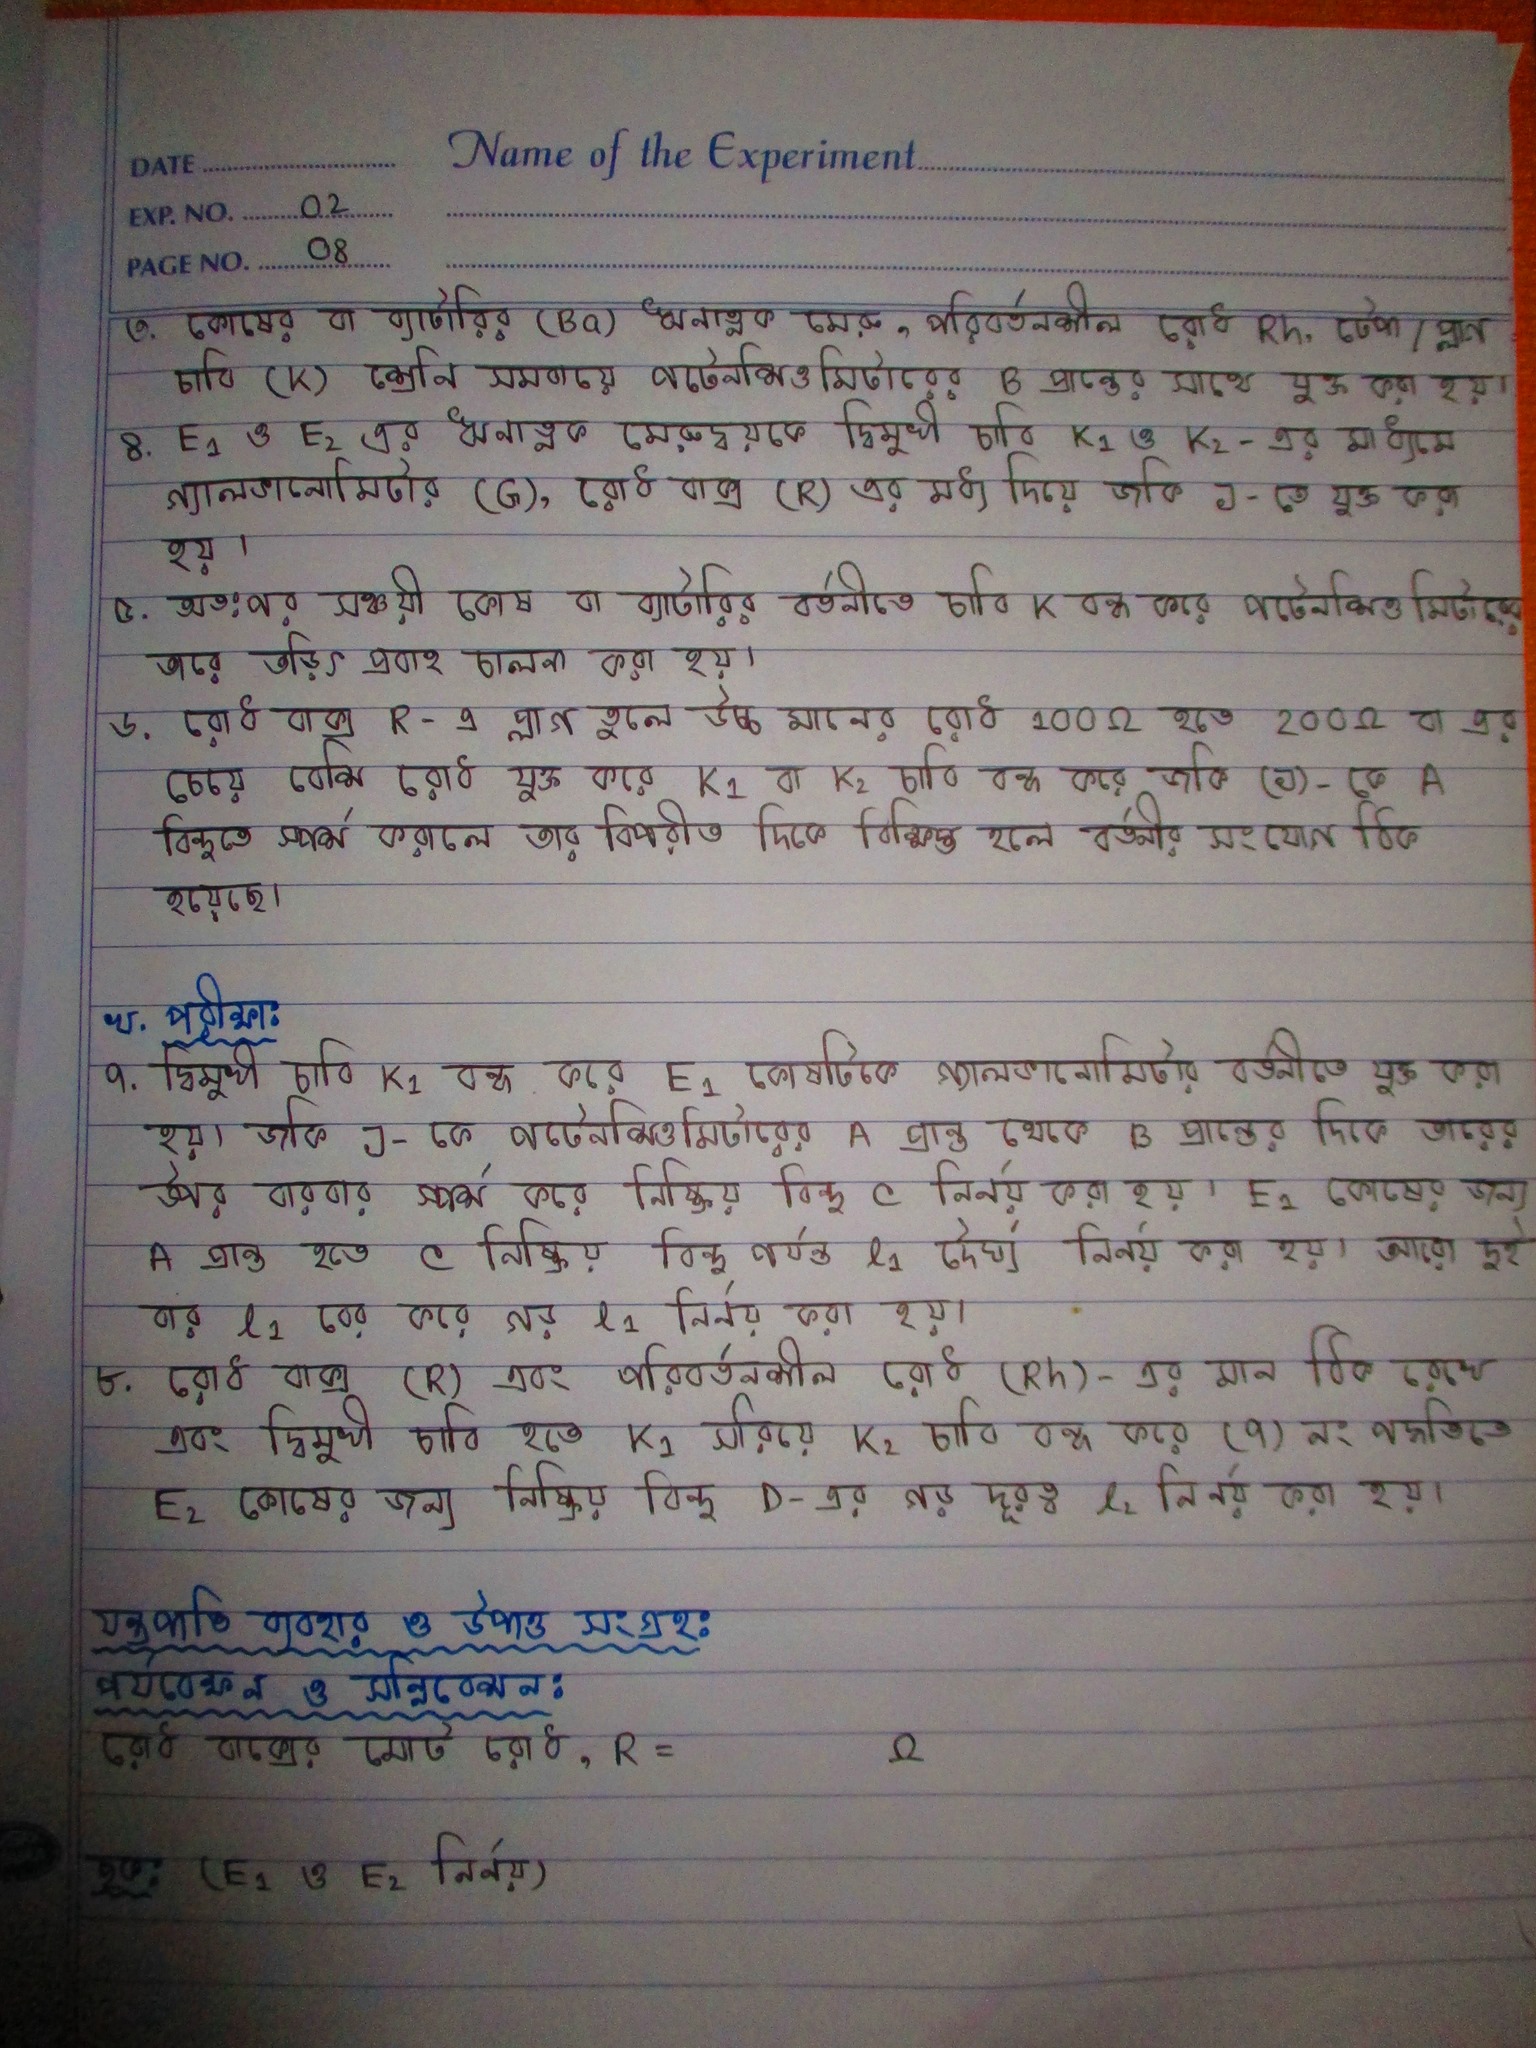 DATE
Name of the Experiment
EXP. NO. 02
PAGE NO. 08
৩. কোষের বা ব্যাটারির (Ba) ধনাত্নক মেরু, পরিবর্তনশীল রোধ Rh, টেপা/প্লাগ
চাবি (K) শ্রেনি সমবায়ে পটেনশিওমিটারের B প্রান্তের সাথে যুক্ত করা হয়।
৪. E₁ ও E₂ এর ধনাত্নক মেরুদ্বয়কে দ্বিমুখী চাবি K₁ ও K₂ - এর মাধ্যমে
গ্যালভানোমিটার (G), রোধ বাক্স (R) এর মধ্য দিয়ে জকি J - তে যুক্ত করা
হয়।
৫. অতঃপর সঞ্চয়ী কোষ বা ব্যাটারির বর্তনীতে চাবি K বন্ধ করে পটেনশিওমিটারের
তারে তড়িৎ প্রবাহ চালনা করা হয়।
৬. রোধ বাক্স R - এ প্লাগ তুলে উচ্চ মানের রোধ 100Ω হতে 200Ω বা এর
চেয়ে বেশি রোধ যুক্ত করে K₁ বা K₂ চাবি বন্ধ করে জকি (J) - কে A
বিন্দুতে স্পর্শ করালে তার বিপরীত দিকে বিক্ষিপ্ত হলে বর্তনীর সংযোগ ঠিক
হয়েছে।
খ. পরীক্ষা:
৭. দ্বিমুখী চাবি K₁ বন্ধ করে E₁ কোষটিকে গ্যালভানোমিটার বর্তনীতে যুক্ত করা
হয়। জকি J - কে পটেনশিওমিটারের A প্রান্ত থেকে B প্রান্তের দিকে তারের
উপর বারবার স্পর্শ করে নিষ্ক্রিয় বিন্দু C নির্নয় করা হয়। E₁ কোষের জন্য
A প্রান্ত হতে C নিষ্ক্রিয় বিন্দু পর্যন্ত l₁ দৈর্ঘ্য নির্নয় করা হয়। আরো দুই
বার l₁ বের করে গড় l₁ নির্নয় করা হয়।
৮. রোধ বাক্স (R) এবং পরিবর্তনশীল রোধ (Rh) - এর মান ঠিক রেখে
এবং দ্বিমুখী চাবি হতে K₁ সরিয়ে K₂ চাবি বন্ধ করে (৭) নং পদ্ধতিতে
E₂ কোষের জন্য নিষ্ক্রিয় বিন্দু D - এর গড় দূরত্ব l₂ নির্নয় করা হয়।
যন্ত্রপাতি ব্যবহার ও উপাত্ত সংগ্রহ:
পর্যবেক্ষন ও সন্নিবেশন:
রোধ বাক্সের মোট রোধ, R = Ω
ছক: (E₁ ও E₂ নির্নয়)